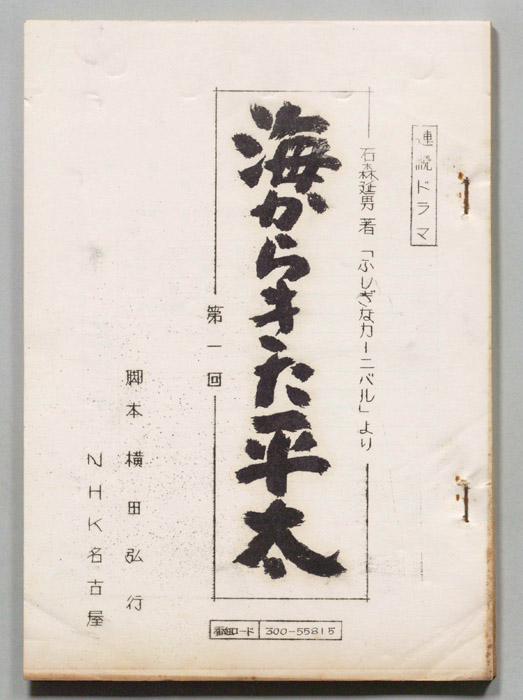 連続ドラマ
石森延男著「ふしぎなカーニバル」より
海からきた平太
第一回
脚本 横田弘行
NHK名古屋
番組コード 300-55815